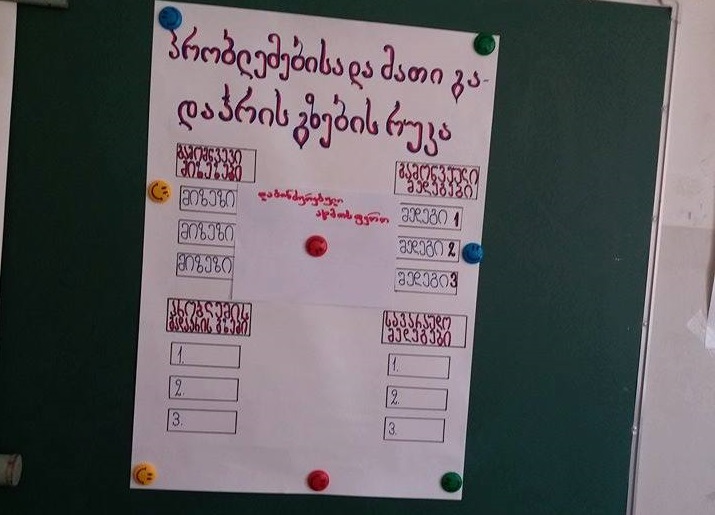 პრობლემებისა და მათი გა-
დაჭრის გზების რუკა
გამომწვევი
მიზეზები
მიზეზი
მიზეზი
მიზეზი
დაბინძურებული
ატმოსფერო
გამოწვეული
შედეგები
შედეგი 1
შედეგი 2
შედეგი 3
პრობლემის
გადაჭრის გზები
1.
2.
3.
სავარაუდო
შედეგები
1.
2.
3.